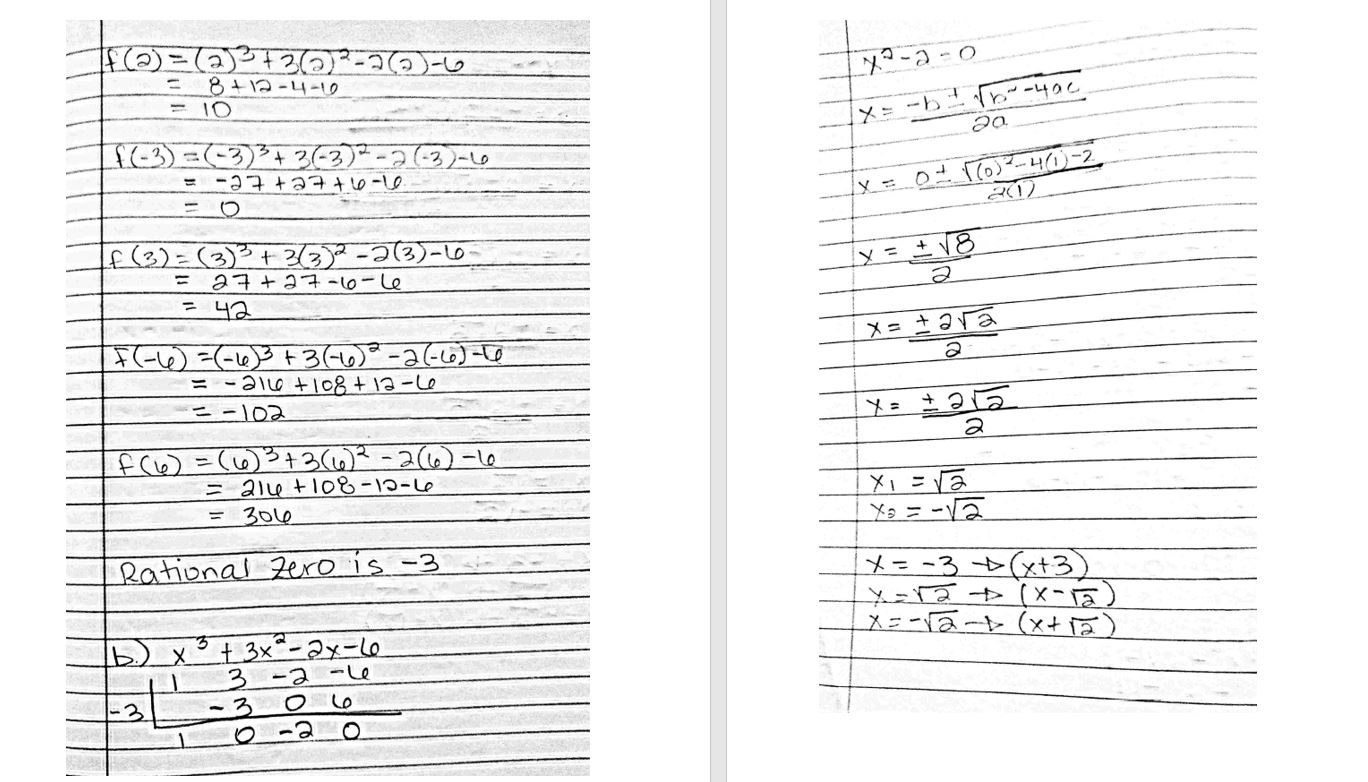 f(2) = (2)³ + 3(2)² - 2(2) - 6
= 8 + 12 - 4 - 6
= 10
f(-3) = (-3)³ + 3(-3)² - 2(-3) - 6
= -27 + 27 + 6 - 6
= 0
f(3) = (3)³ + 3(3)² - 2(3) - 6
= 27 + 27 - 6 - 6
= 42
f(-6) = (-6)³ + 3(-6)² - 2(-6) - 6
= -216 + 108 + 12 - 6
= -102
f(6) = (6)³ + 3(6)² - 2(6) - 6
= 216 + 108 - 12 - 6
= 306
Rational zero is -3
b.) x³ + 3x² - 2x - 6
1 3 -2 -6
-3 | -3 0 6
1 0 -2 0
x² - 2 = 0
x = -b ± √b² - 4ac / 2a
x = 0 ± √(0)² - 4(1) - 2 / 2(1)
x = ± √8 / 2
x = ± 2√2 / 2
x = ± 2√2 / 2
x₁ = √2
x₂ = -√2
x = -3 → (x+3)
x = √2 → (x-√2)
x = -√2 → (x+√2)